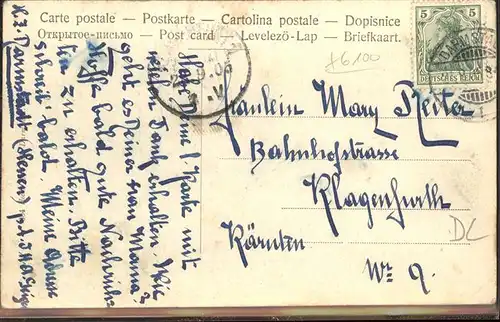 Carte postale — Postkarte — Cartolina postale — Dopisnice
Открытое-письмо — Post card — Levelezö-Lap — Briefkaart.
5 5
DEUTSCHES REICH
£6100
Fräulein Mary Reiter
Bahnhofstrasse
Klagenfurth
Kärnten
Nr 9.
DL
Karte mit
vielen Dank erhalten. Wie
geht es Deiner Mama?
Hoffe bald gute Nachricht
zu erhalten. Bitte
schreib bald. Meine Adresse
Darmstadt (Hessen)